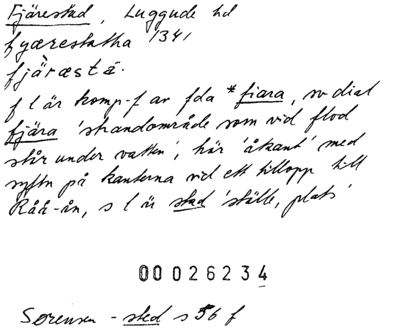 Fjärestad, Luggude hd
fyærestatha 1341
fjàræstá.
f l är komp-f av fda *fiara, sv dial
fjära 'strandområde som vid flod
står under vatten', här 'åkant' med
syftn på kanterna vid ett tillopp till
Råå-ån, s l är stad 'ställe, plats'
00026234
Sørensen - sted s 56 f